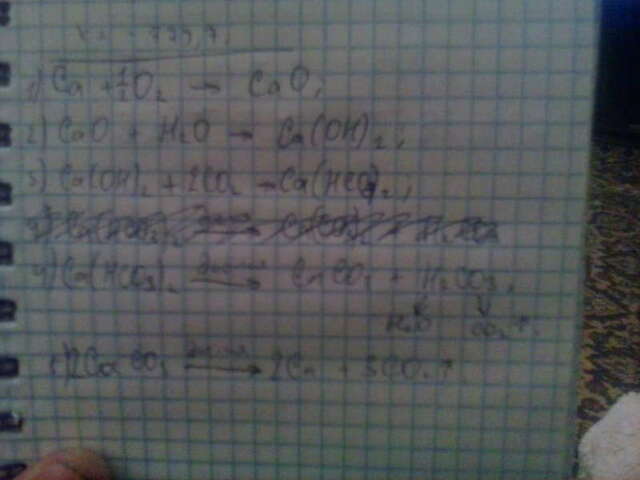 1) Ca + 1/2 O₂ → CaO;
2) CaO + H₂O → Ca(OH)₂;
3) Ca(OH)₂ + 2CO₂ → Ca(HCO₃)₂;
4) Ca(HCO₃)₂ → CaCO₃ + H₂CO₃
H₂O CO₂↑
2CaCO₃ → 2Ca + 3CO₂↑